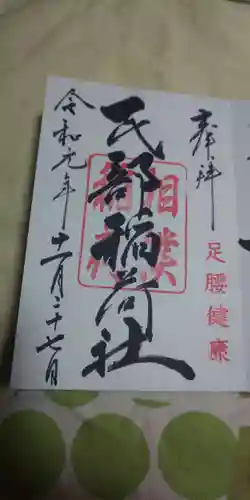 奉拝
足腰健康
民部稲荷社
相撲稲荷
令和元年十一月二十七日